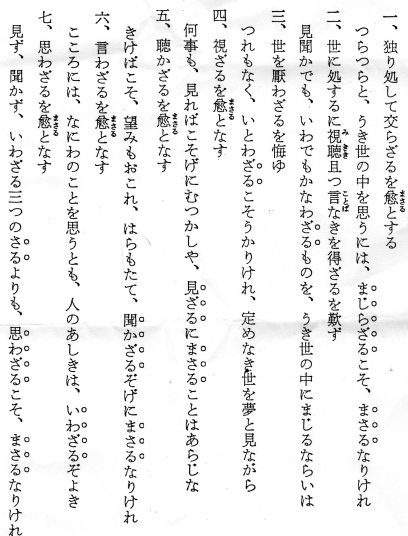 一、独り処して交らざるを愈とする
つらつらと、うき世の中を思うには、まじらざるこそ、まさるなりけれ
二、世に処するに視聴且つ言なきを得ざるを歎ず
見聞かでも、いわでもかなわざるものを、うき世の中にまじるならいは
三、世を厭わざるを悔ゆ
つれもなく、いとわざるこそうかりけれ、定めなき世を夢と見ながら
四、視ざるを愈となす
何事も、見ればこそげにむつかしや、見ざるにまさることはあらじな
五、聴かざるを愈となす
きけばこそ、望みもおこれ、はらもたて、聞かざるぞげにまさるなりけれ
六、言わざるを愈となす
こころには、なにわのことを思うとも、人のあしきは、いわざるぞよき
七、思わざるを愈となす
見ず、聞かず、いわざる三つのさるよりも、思わざるこそ、まさるなりけれ